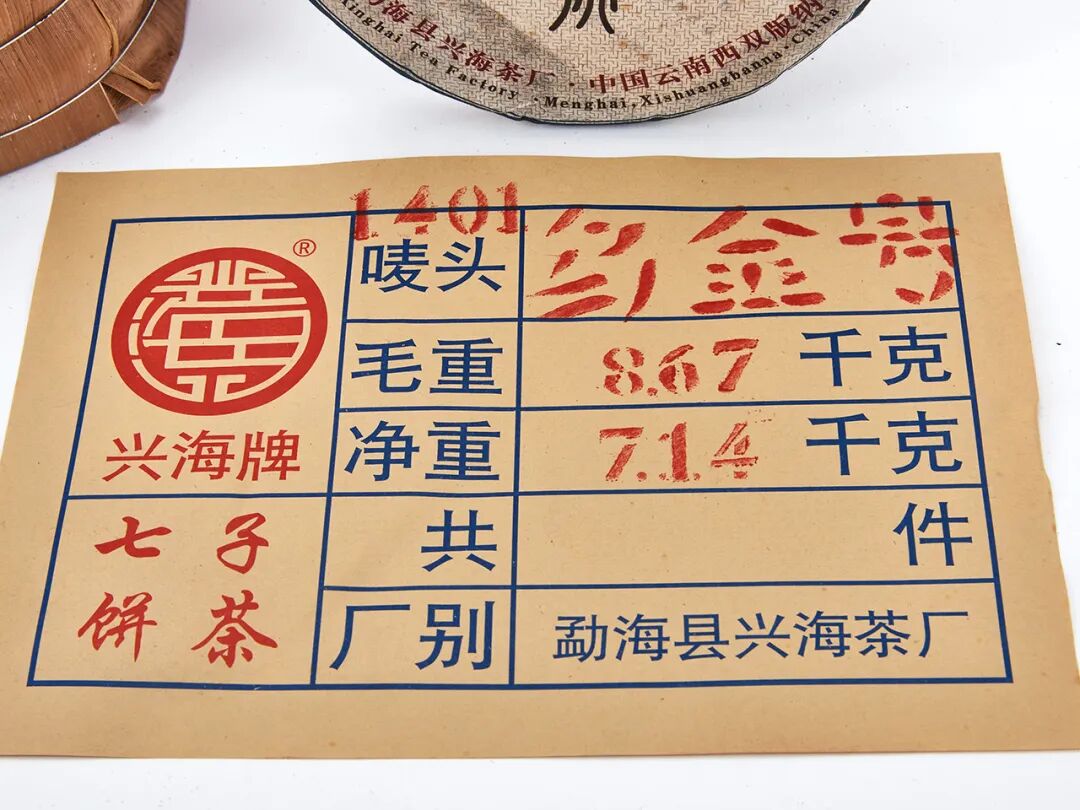 海县兴海茶厂 · 中国云南西双版纳
Xinghai Tea Factory · Menghai, Xishuangbanna, China
1401
唛头
金
®
毛重 8.67 千克
兴海牌
净重 7.14 千克
七子
饼茶
共 件
厂别 勐海县兴海茶厂